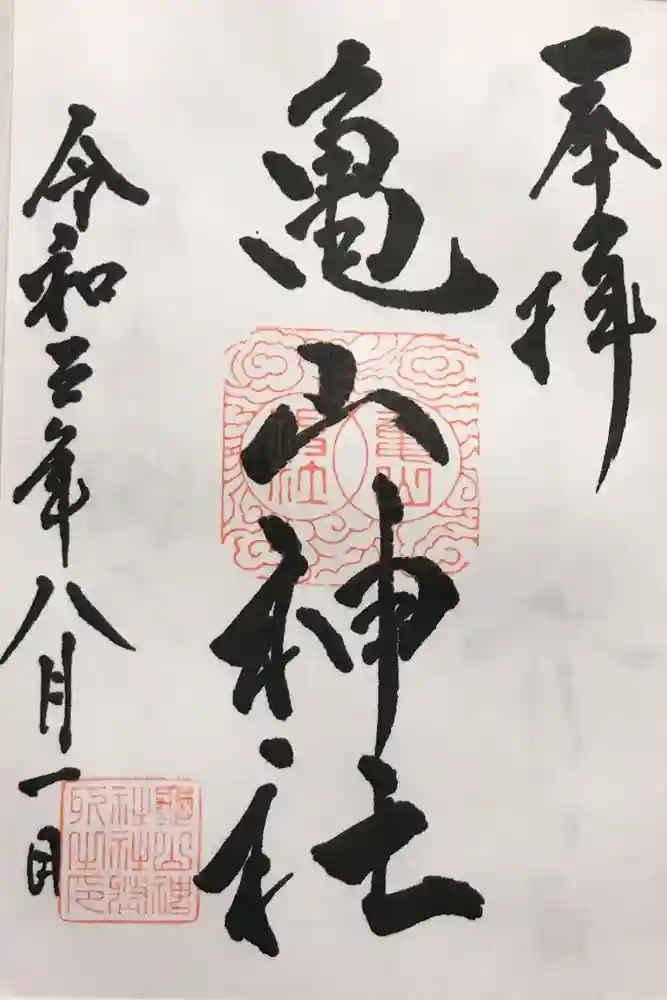 奉拝
亀山神社
令和三年八月一日
亀山
神社